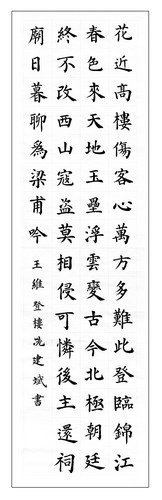 花近高樓傷客心萬方多難此登臨錦江
春色來天地玉壘浮雲變古今北極朝廷
終不改西山寇盜莫相侵可憐後主還祠
廟日暮聊爲梁甫吟 王維登樓冼建斌書